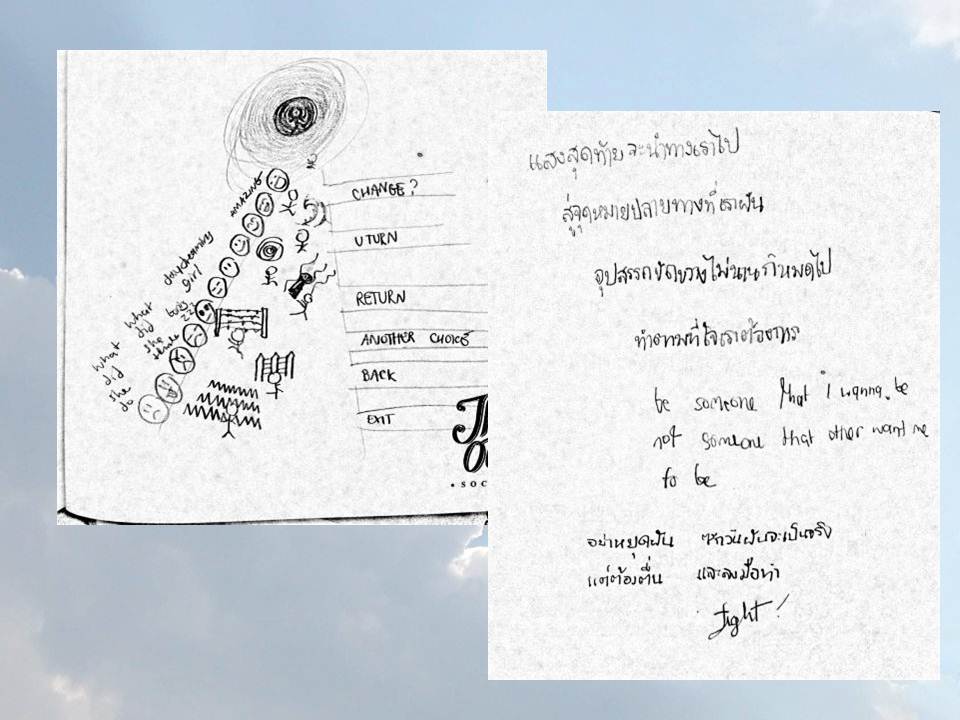 AMAZING
daydreaming
girl
busy
zzz
what
did
she
what
did
she
do
CHANGE?
U TURN
RETURN
ANOTHER CHOICE
BACK
EXIT
แสงสุดท้ายจะนำทางเราไป
สู่จุดหมายปลายทางที่เราฝัน
อุปสรรคขัดขวางไม่นานก็หมดไป
ทำตามที่ใจเราต้องการ
be someone that i wanna be
not someone that other want me
to be
อย่าหยุดฝัน ซักวันฝันจะเป็นจริง
แต่ต้องตื่น และลงมือทำ
fight!